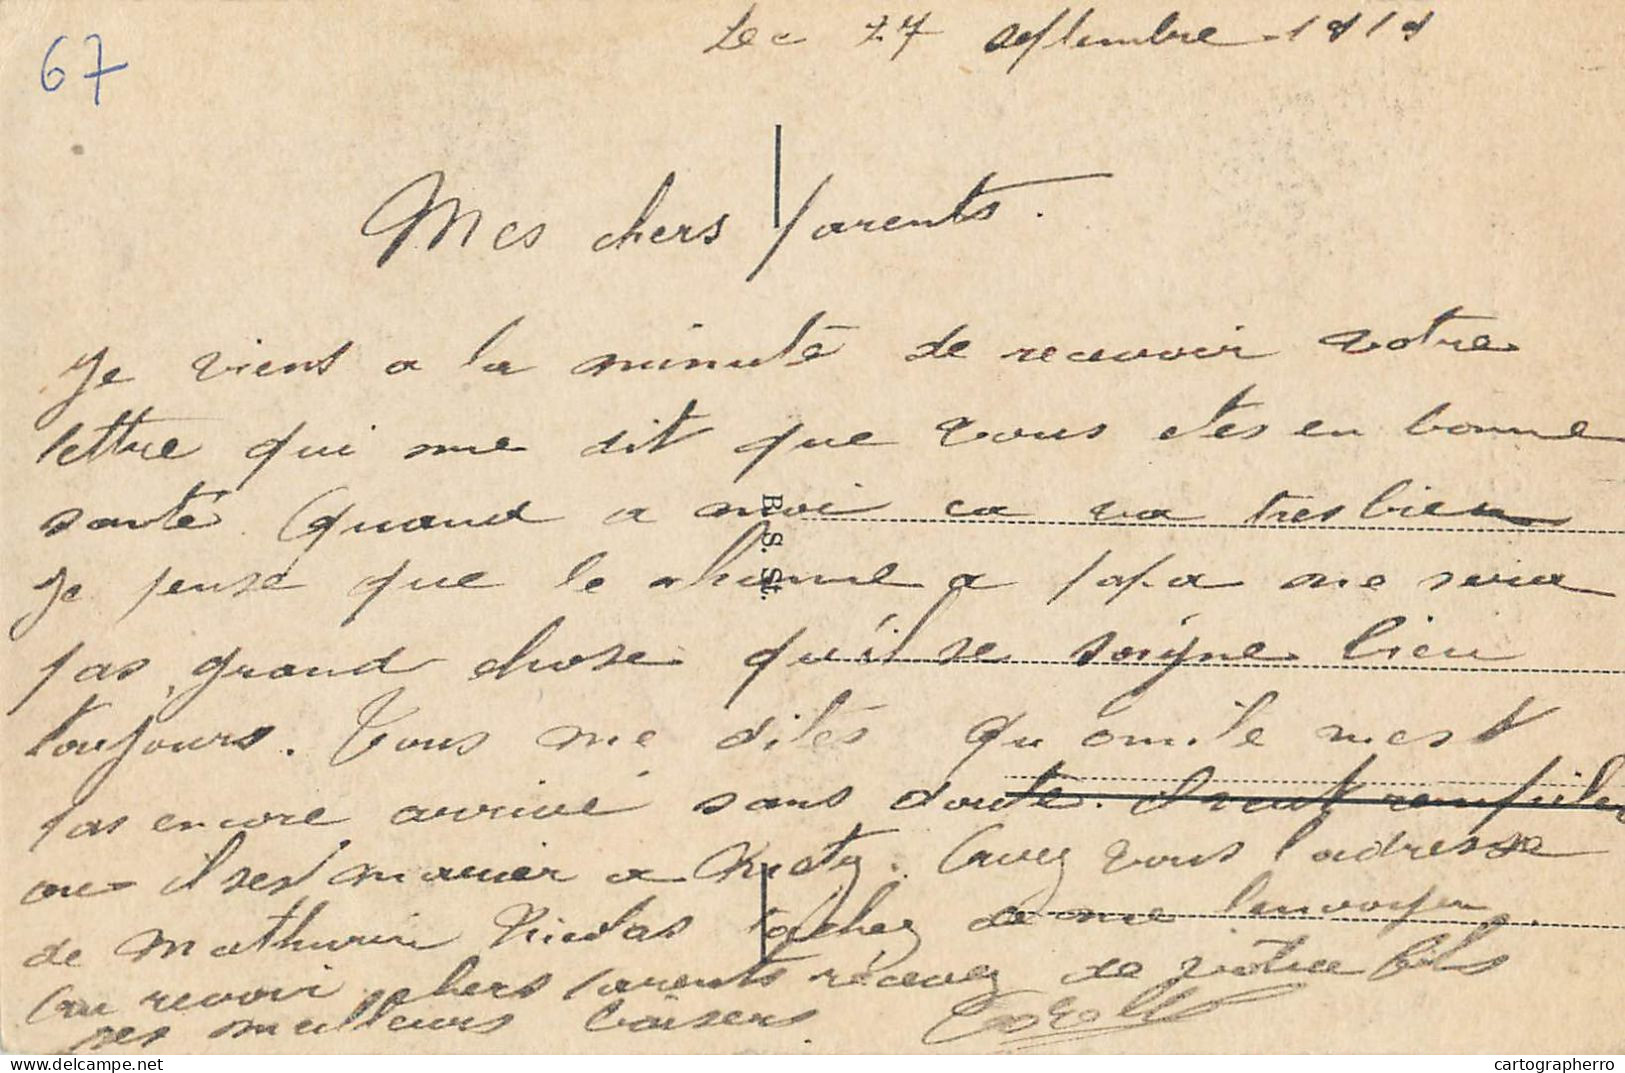 67
Le 27 septembre 1919
Mes chers parents.
Je viens a la minute de recevoir votre
lettre qui me dit que vous etes en bonne
santé. Quand a moi ca va tres bien
B. S. St.
Je pense que le rhume a papa ne sera
pas grand chose qu'il se soigne bien
toujours. Vous me dites qu omile n'est
pas encore arrivé sans doute.
ou il ses marier a Metz. Avez vous l'adresse
de Mathurin Nicolas tachez de me l'envoyer.
Au revoir chers parents récevez de votre fils
ses meilleurs baisers.
cartographerro